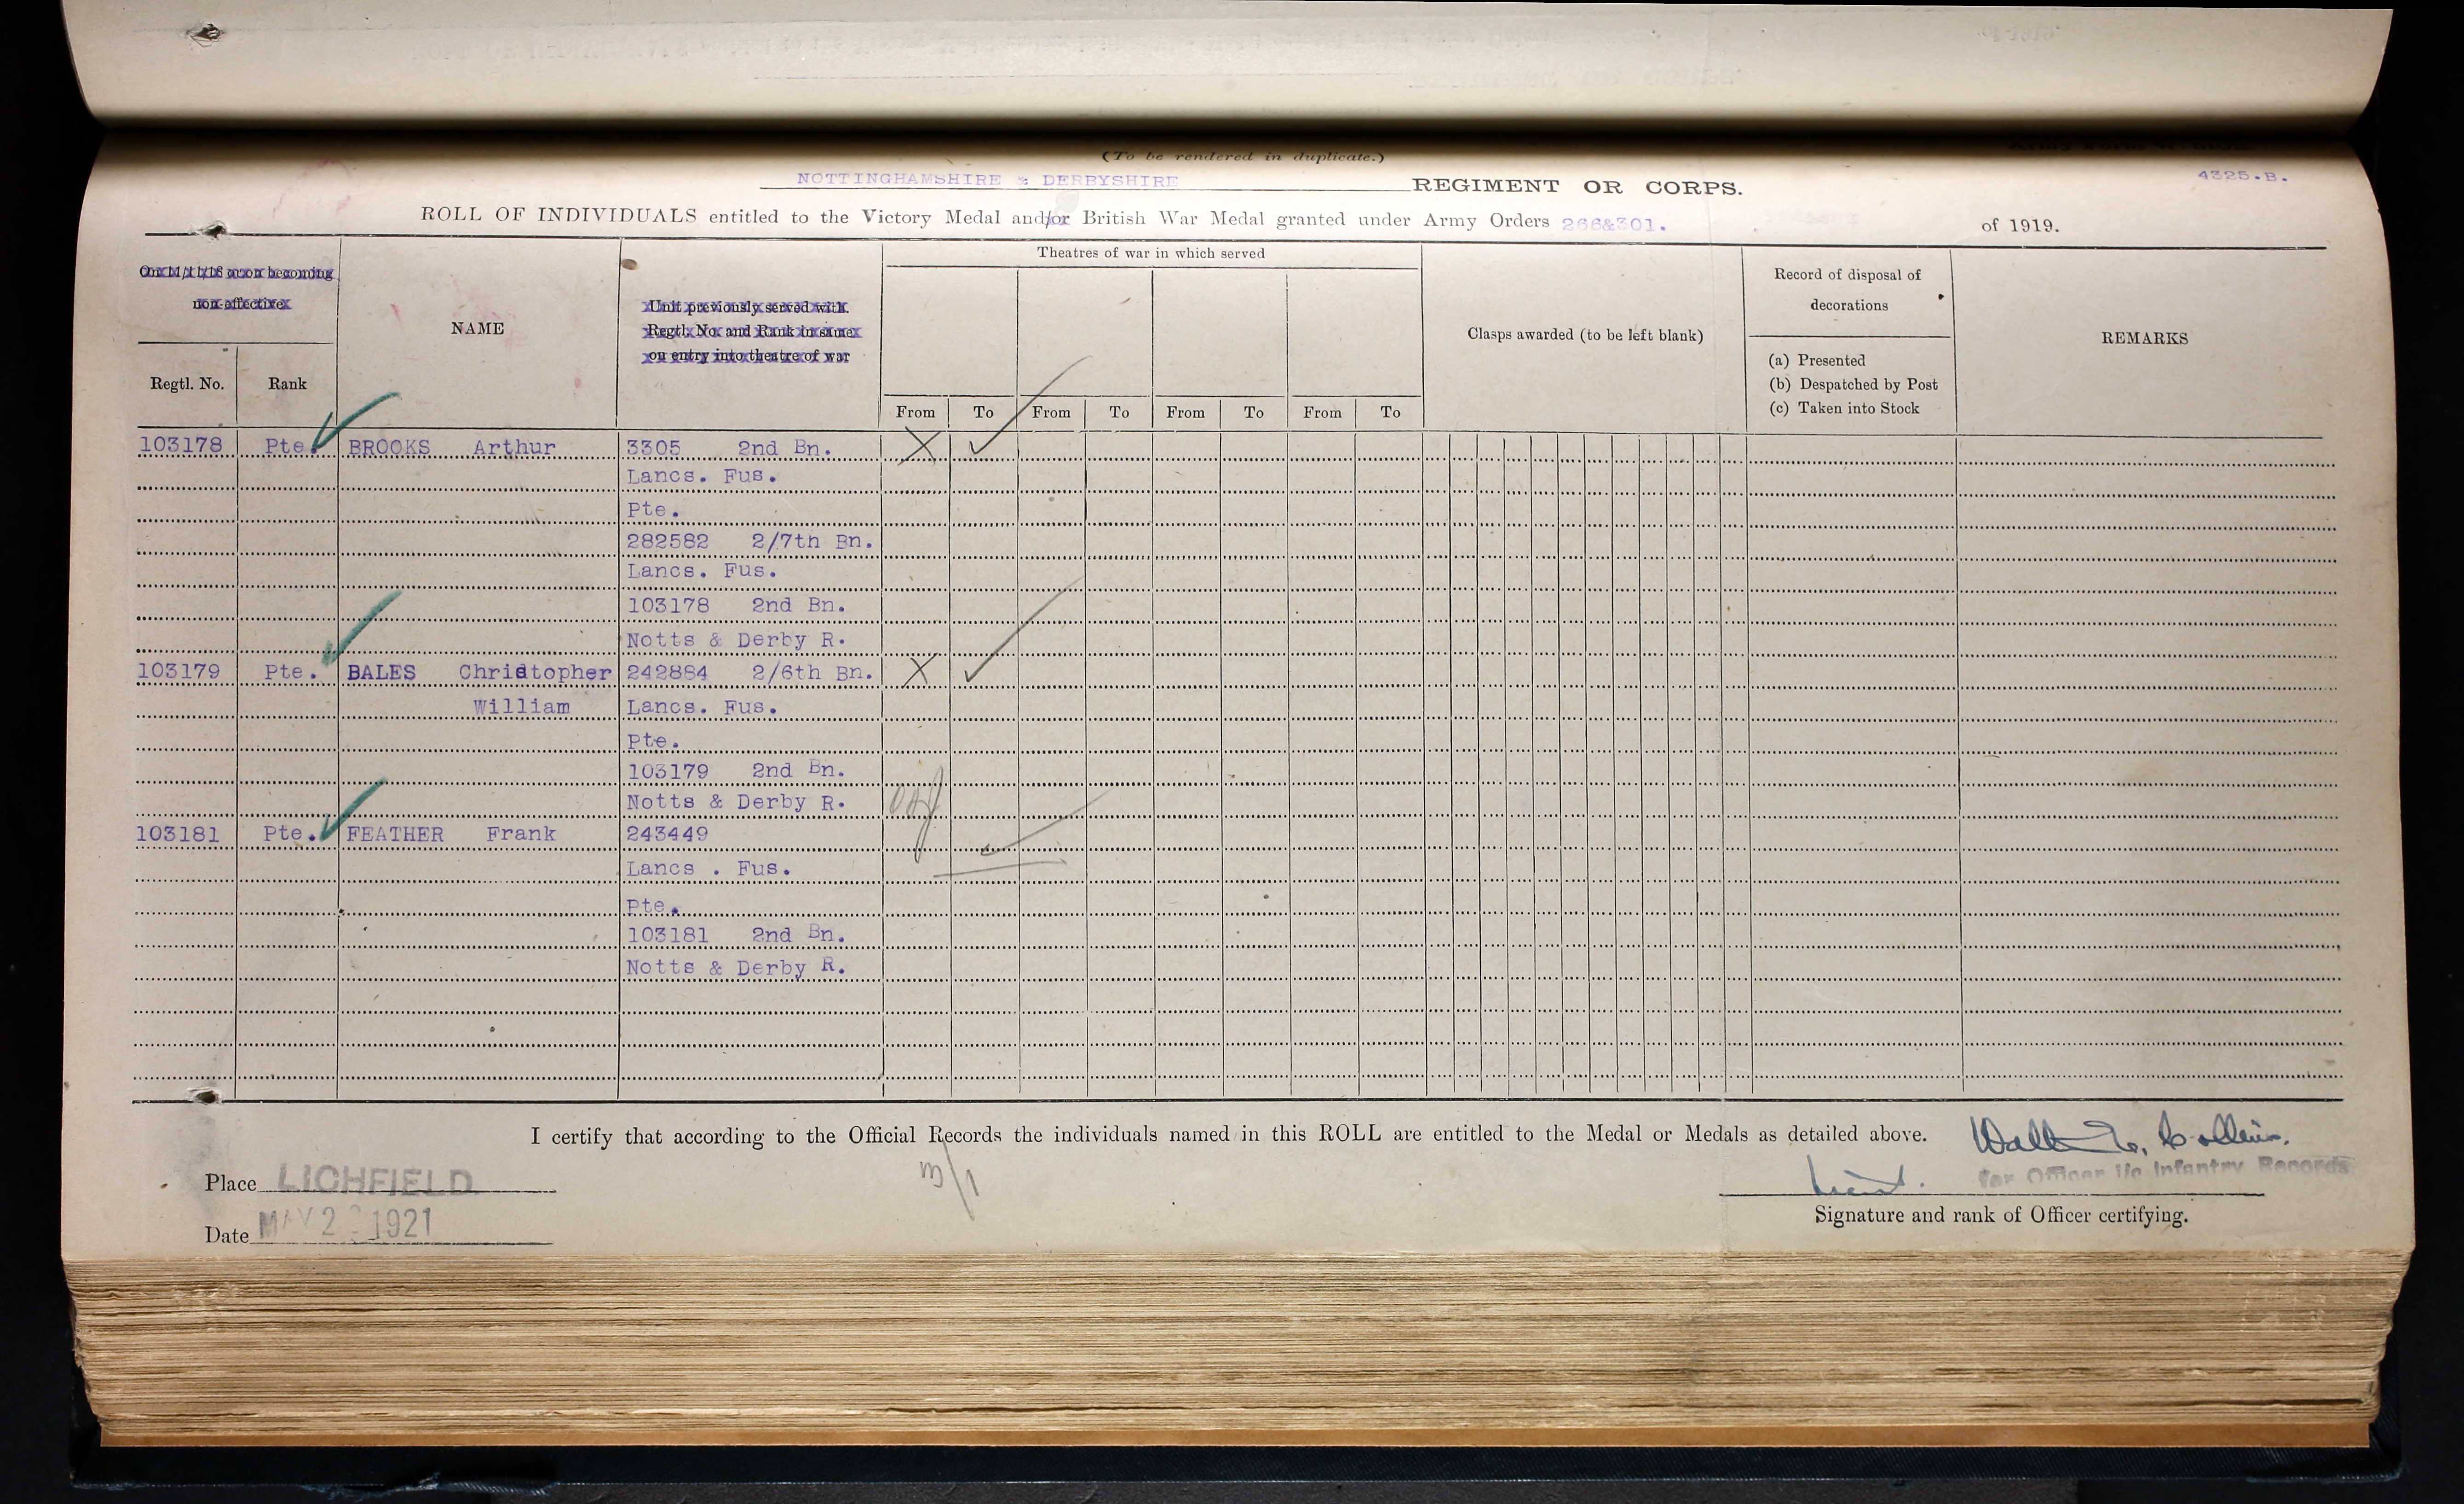 (To be rendered in duplicate.)
NOTTINGHAMSHIRE & DERBYSHIRE REGIMENT OR CORPS. 4325.B.
ROLL OF INDIVIDUALS entitled to the Victory Medal and/or British War Medal granted under Army Orders 266&301. of 1919.
On 11/11/18 or on becoming
non-effective
Regtl. No. Rank
NAME
Unit previously served with.
Regtl. No. and Rank in same
on entry into theatre of war
Theatres of war in which served
From To From To From To From To
Clasps awarded (to be left blank)
Record of disposal of
decorations
(a) Presented
(b) Despatched by Post
(c) Taken into Stock
REMARKS
103178 Pte. BROOKS Arthur 3305 2nd Bn. X
Lancs. Fus.
Pte.
282582 2/7th Bn.
Lancs. Fus.
103178 2nd Bn.
Notts & Derby R.
103179 Pte. BALES Christopher 242884 2/6th Bn. X
William Lancs. Fus.
Pte.
103179 2nd Bn.
Notts & Derby R.
103181 Pte. FEATHER Frank 243449
Lancs . Fus.
Pte.
103181 2nd Bn.
Notts & Derby R.
I certify that according to the Official Records the individuals named in this ROLL are entitled to the Medal or Medals as detailed above.
Place LICHFIELD
Date MAY 2 1921
Collins.
Lieut. for Officer i/c Infantry Records
Signature and rank of Officer certifying.